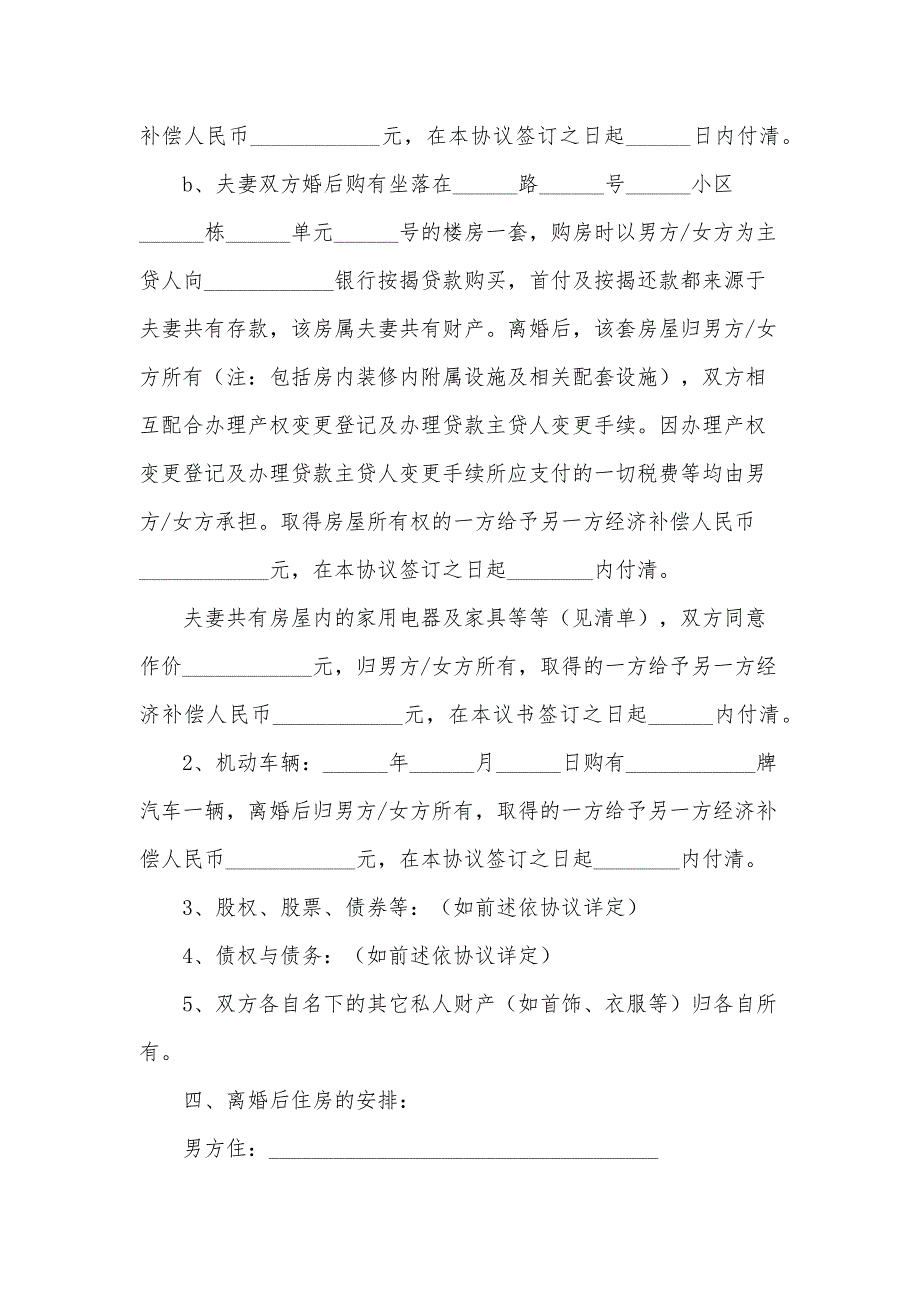 补偿人民币____________元，在本协议签订之日起______日内付清。
b、夫妻双方婚后购有坐落在______路______号______小区
______栋______单元______号的楼房一套，购房时以男方/女方为主
贷人向____________银行按揭贷款购买，首付及按揭还款都来源于
夫妻共有存款，该房属夫妻共有财产。离婚后，该套房屋归男方/女
方所有（注：包括房内装修内附属设施及相关配套设施），双方相
互配合办理产权变更登记及办理贷款主贷人变更手续。因办理产权
变更登记及办理贷款主贷人变更手续所应支付的一切税费等均由男
方/女方承担。取得房屋所有权的一方给予另一方经济补偿人民币
____________元，在本协议签订之日起________内付清。
夫妻共有房屋内的家用电器及家具等等（见清单），双方同意
作价____________元，归男方/女方所有，取得的一方给予另一方经
济补偿人民币____________元，在本议书签订之日起______内付清。
2、机动车辆：______年______月______日购有____________牌
汽车一辆，离婚后归男方/女方所有，取得的一方给予另一方经济补
偿人民币____________元，在本协议签订之日起________内付清。
3、股权、股票、债券等：（如前述依协议详定）
4、债权与债务：（如前述依协议详定）
5、双方各自名下的其它私人财产（如首饰、衣服等）归各自所
有。
四、离婚后住房的安排：
男方住：____________________________________